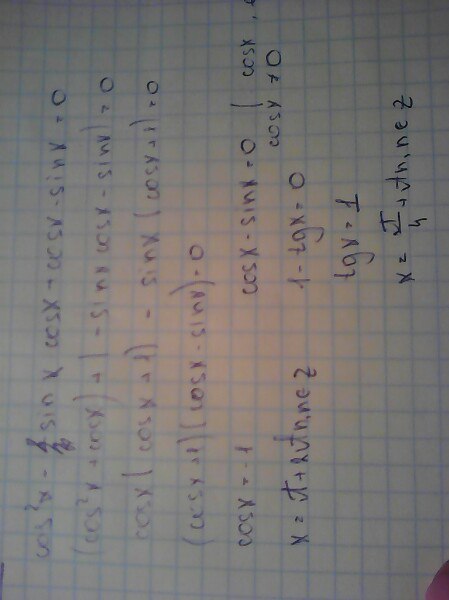 cos²x - sin x cosx + cosx - sinx = 0
(cos²x + cosx) + (- sinx cosx - sinx) = 0
cosx (cosx + 1) - sinx (cosx + 1) = 0
(cosx + 1)(cosx - sinx) = 0
cosx = -1 cosx - sinx = 0 | cosx,
cosx ≠ 0
x = π + 2πn, n ∈ z 1 - tgx = 0
tgx = 1
x = π/4 + πn, n ∈ z